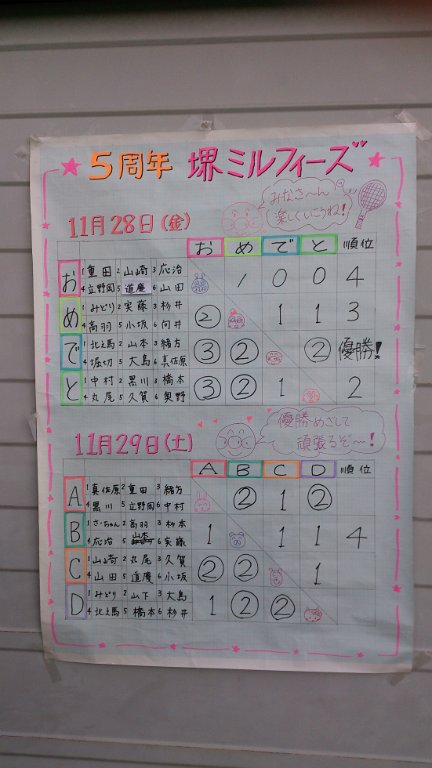 5周年 堺ミルフィーズ
みなさ～ん
楽しくいこうね!
11月28日(金)
お め で と 順位
お 1重田 2山崎 3応治 / 0 0 4
4立野岡 5道慶 6山田
め 1みどり 2実藤 3杉井 ② 1 1 3
4高羽 5小坂 6向井
で 1北之馬 2山本 3緒方 ③ ② ② 優勝!
4堀切 5大島 6真佐原
と 1中村 2黒川 3橋本 ③ ② 1 2
4丸尾 5久賀 6奥野
優勝めざして
頑張るぞ～!
11月29日(土)
A B C D 順位
A 1真佐原 2重田 3緒方 ② 1 ②
4黒川 5立野岡 6中村
B 1さっちゃん 2高羽 3杉本 1 1 1 4
4応治 5山本 6実藤
C 1山崎 2丸尾 3久賀 ② ② 1
4山田 5道慶 6小坂
D 1みどり 2山下 3大島 1 ② ②
4北之馬 5橋本 6杉井